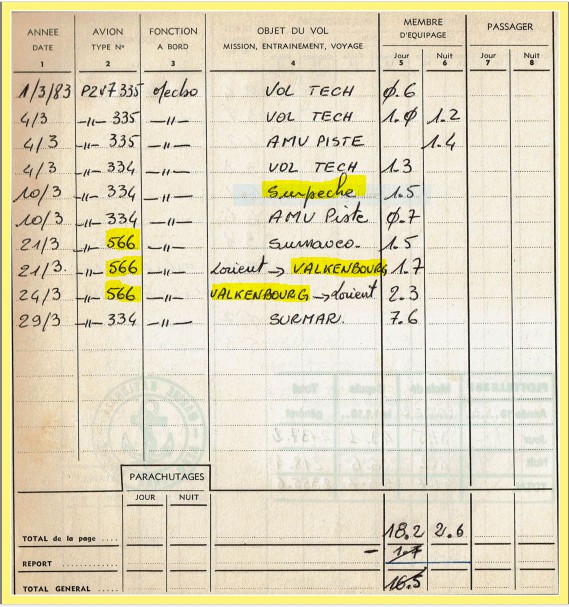 ANNEE AVION FONCTION OBJET DU VOL MEMBRE D'EQUIPAGE PASSAGER
DATE TYPE N° A BORD MISSION, ENTRAINEMENT, VOYAGE Jour Nuit Jour Nuit
1 2 3 4 5 6 7 8
1/3/83 P2V7 335 Mecbo VOL TECH 0.6
4/3 -"- 335 -"- VOL TECH 1.0 1.2
4/3 -"- 335 -"- AMV PISTE 1.4
4/3 -"- 334 -"- VOL TECH 1.3
10/3 -"- 334 -"- Surpeche 1.5
10/3 -"- 334 -"- AMV Piste 0.7
21/3 -"- 566 -"- Surmanco. 1.5
21/3. -"- 566 -"- Lorient → VALKENBOURG 1.7
24/3 -"- 566 -"- VALKENBOURG → Lorient 2.3
29/3 -"- 334 -"- SURMAR. 7.6
PARACHUTAGES
JOUR NUIT
TOTAL de la page .... 18.2 2.6
REPORT .... - 1.7
TOTAL GENERAL .... 16.5